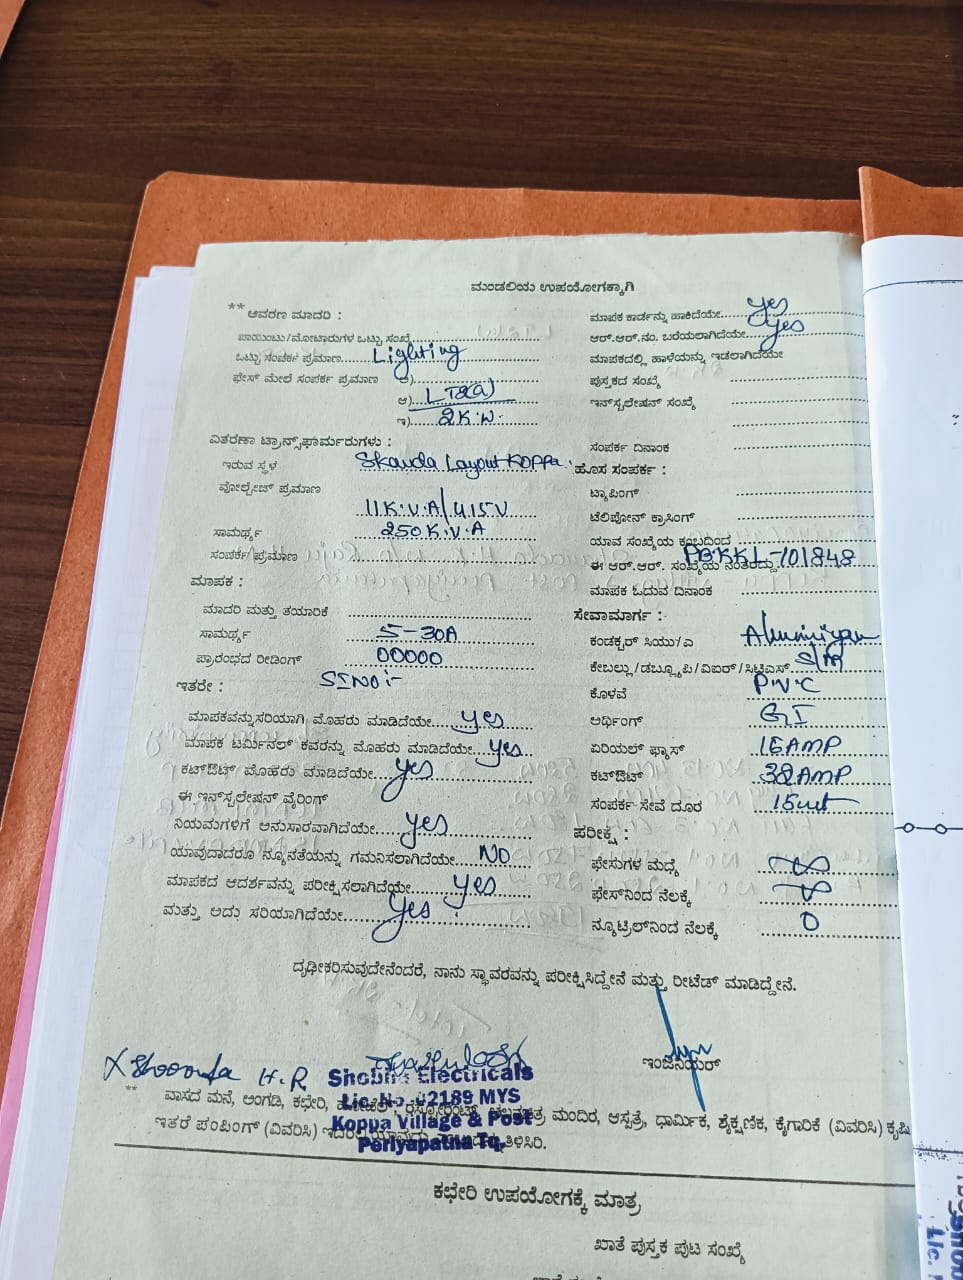 ಮಂಡಲಿಯ ಉಪಯೋಗಕ್ಕಾಗಿ
** ಆವರಣ ಮಾದರಿ :
ಪಾಯಿಂಟು/ಮೋಟಾರುಗಳ ಒಟ್ಟು ಸಂಖ್ಯೆ
ಒಟ್ಟು ಸಂಪರ್ಕ ಪ್ರಮಾಣ Lighting
ಫೇಸ್ ಮೇಲೆ ಸಂಪರ್ಕ ಪ್ರಮಾಣ ಅ)
ಆ)
ಇ) 2K.W.
ವಿತರಣಾ ಟ್ರಾನ್ಸ್‌ಫಾರ್ಮರುಗಳು :
ಇರುವ ಸ್ಥಳ Skanda Layout Koppa.
ವೋಲ್ಟೇಜ್ ಪ್ರಮಾಣ
11K.V.A/415V
ಸಾಮರ್ಥ್ಯ 250K.V.A
ಸಂಪರ್ಕ ಪ್ರಮಾಣ
ಮಾಪಕ :
ಮಾದರಿ ಮತ್ತು ತಯಾರಿಕೆ
ಸಾಮರ್ಥ್ಯ 5-30A
ಪ್ರಾರಂಭದ ರೀಡಿಂಗ್ 00000
ಇತರೇ : SINO:-
ಮಾಪಕವನ್ನು ಸರಿಯಾಗಿ ಮೊಹರು ಮಾಡಿದೆಯೇ yes
ಮಾಪಕ ಟರ್ಮಿನಲ್ ಕವರನ್ನು ಮೊಹರು ಮಾಡಿದೆಯೇ yes
ಕಟ್‌ಔಟ್ ಮೊಹರು ಮಾಡಿದೆಯೇ yes
ಈ ಇನ್‌ಸ್ಟಲೇಷನ್ ವೈರಿಂಗ್
ನಿಯಮಗಳಿಗೆ ಅನುಸಾರವಾಗಿದೆಯೇ yes
ಯಾವುದಾದರೂ ನ್ಯೂನತೆಯನ್ನು ಗಮನಿಸಲಾಗಿದೆಯೇ NO
ಮಾಪಕದ ಆದರ್ಶವನ್ನು ಪರೀಕ್ಷಿಸಲಾಗಿದೆಯೇ yes
ಮತ್ತು ಅದು ಸರಿಯಾಗಿದೆಯೇ yes
ಮಾಪಕ ಕಾರ್ಡನ್ನು ಹಾಕಿದೆಯೇ yes
ಆರ್.ಆರ್.ನಂ. ಬರೆಯಲಾಗಿದೆಯೇ yes
ಮಾಪಕದಲ್ಲಿ ಹಾಳೆಯನ್ನು ಇಡಲಾಗಿದೆಯೇ
ಪುಸ್ತಕದ ಸಂಖ್ಯೆ
ಇನ್‌ಸ್ಟಲೇಷನ್ ಸಂಖ್ಯೆ
ಸಂಪರ್ಕ ದಿನಾಂಕ
ಹೊಸ ಸಂಪರ್ಕ :
ಟ್ಯಾಪಿಂಗ್
ಟೆಲಿಪೋನ್ ಕ್ರಾಸಿಂಗ್
ಯಾವ ಸಂಖ್ಯೆಯ ಕಂಬದಿಂದ
ಈ ಆರ್.ಆರ್. ಸಂಖ್ಯೆಯ ನಂತರದ್ದು PBKKL-101848
ಮಾಪಕ ಓದುವ ದಿನಾಂಕ
ಸೇವಾಮಾರ್ಗ :
ಕಂಡಕ್ಟರ್ ಸಿಯು/ಎ
ಕೇಬಲ್ಲು/ಡಬ್ಲ್ಯೂಪಿ/ವಿಐರ್/ಸಿಟಿಎಸ್
ಕೊಳವೆ P.V.C
ಅರ್ಥಿಂಗ್ GI
ಏರಿಯಲ್ ಫ್ಯೂಸ್ 16AMP
ಕಟ್‌ಔಟ್ 32AMP
ಸಂಪರ್ಕ ಸೇವೆ ದೂರ 15mt
ಪರೀಕ್ಷೆ :
ಫೇಸುಗಳ ಮಧ್ಯೆ ∞
ಫೇಸ್‌ನಿಂದ ನೆಲಕ್ಕೆ ∞
ನ್ಯೂಟ್ರಲ್‌ನಿಂದ ನೆಲಕ್ಕೆ 0
ದೃಢೀಕರಿಸುವುದೇನೆಂದರೆ, ನಾನು ಸ್ಥಾವರವನ್ನು ಪರೀಕ್ಷಿಸಿದ್ದೇನೆ ಮತ್ತು ರೀಟೆಡ್ ಮಾಡಿದ್ದೇನೆ.
ಇಂಜಿನಿಯರ್
H.R
Shobha Electricals
Lic. No. 42189 MYS
Koppa Village & Post
Periyapatna Tq.
** ವಾಸದ ಮನೆ, ಅಂಗಡಿ, ಕಛೇರಿ, ಮಂದಿರ, ಆಸ್ಪತ್ರೆ, ಧಾರ್ಮಿಕ, ಶೈಕ್ಷಣಿಕ, ಕೈಗಾರಿಕೆ (ವಿವರಿಸಿ) ಕೃಷಿ
ಇತರೆ ಪಂಪಿಂಗ್ (ವಿವರಿಸಿ) ತಿಳಿಸಿರಿ.
ಕಛೇರಿ ಉಪಯೋಗಕ್ಕೆ ಮಾತ್ರ
ಖಾತೆ ಪುಸ್ತಕ ಪುಟ ಸಂಖ್ಯೆ